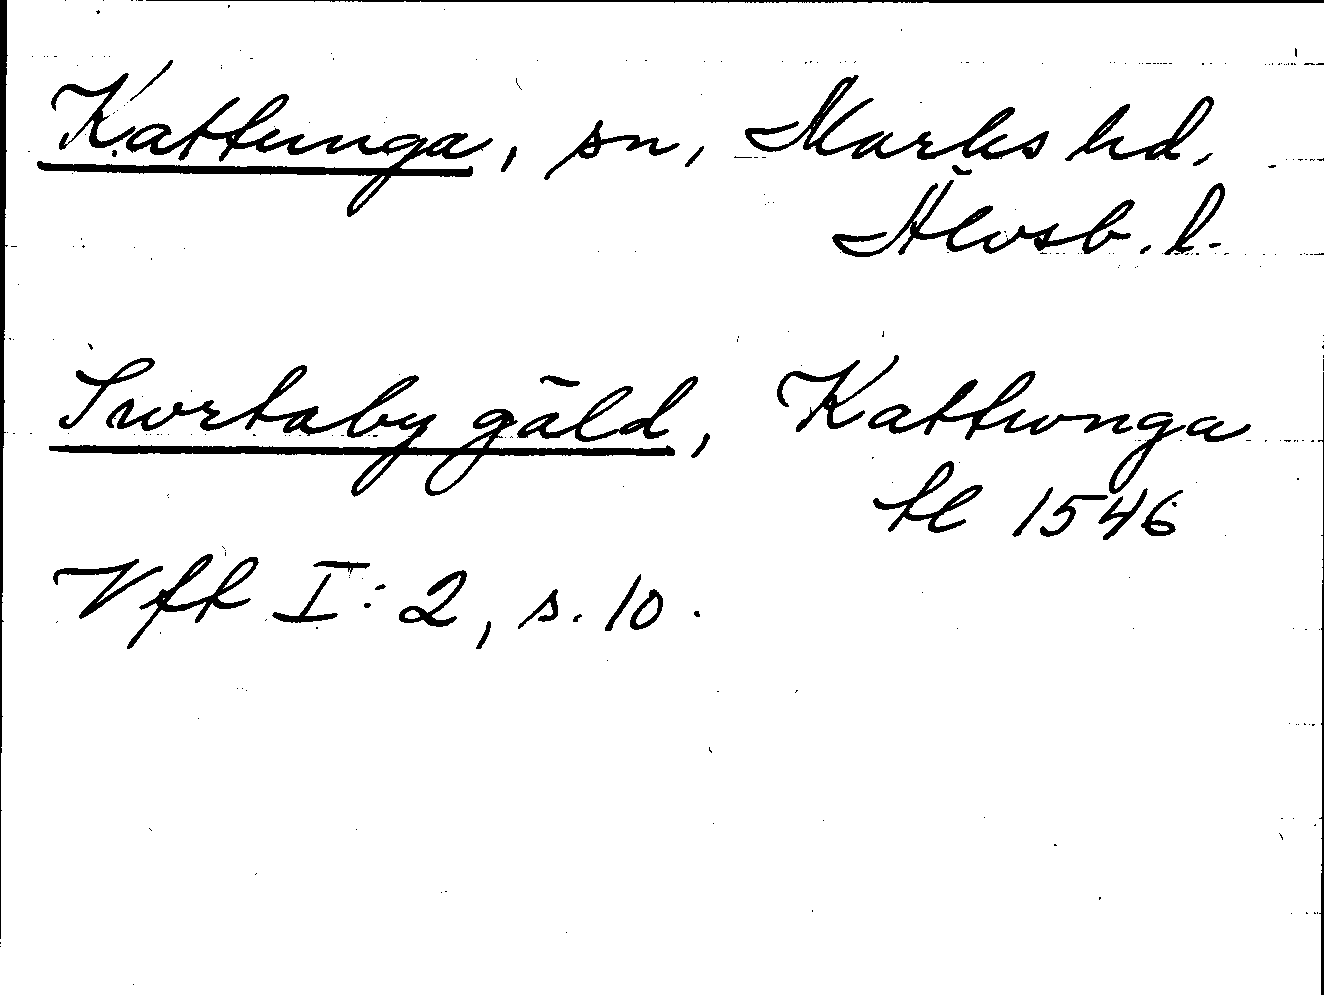 Kattunga, sn, Marks hd.
Älvsb. l.
Svortaby gäld, Kattwnga
tl 1546
Vfft I: 2, s. 10.